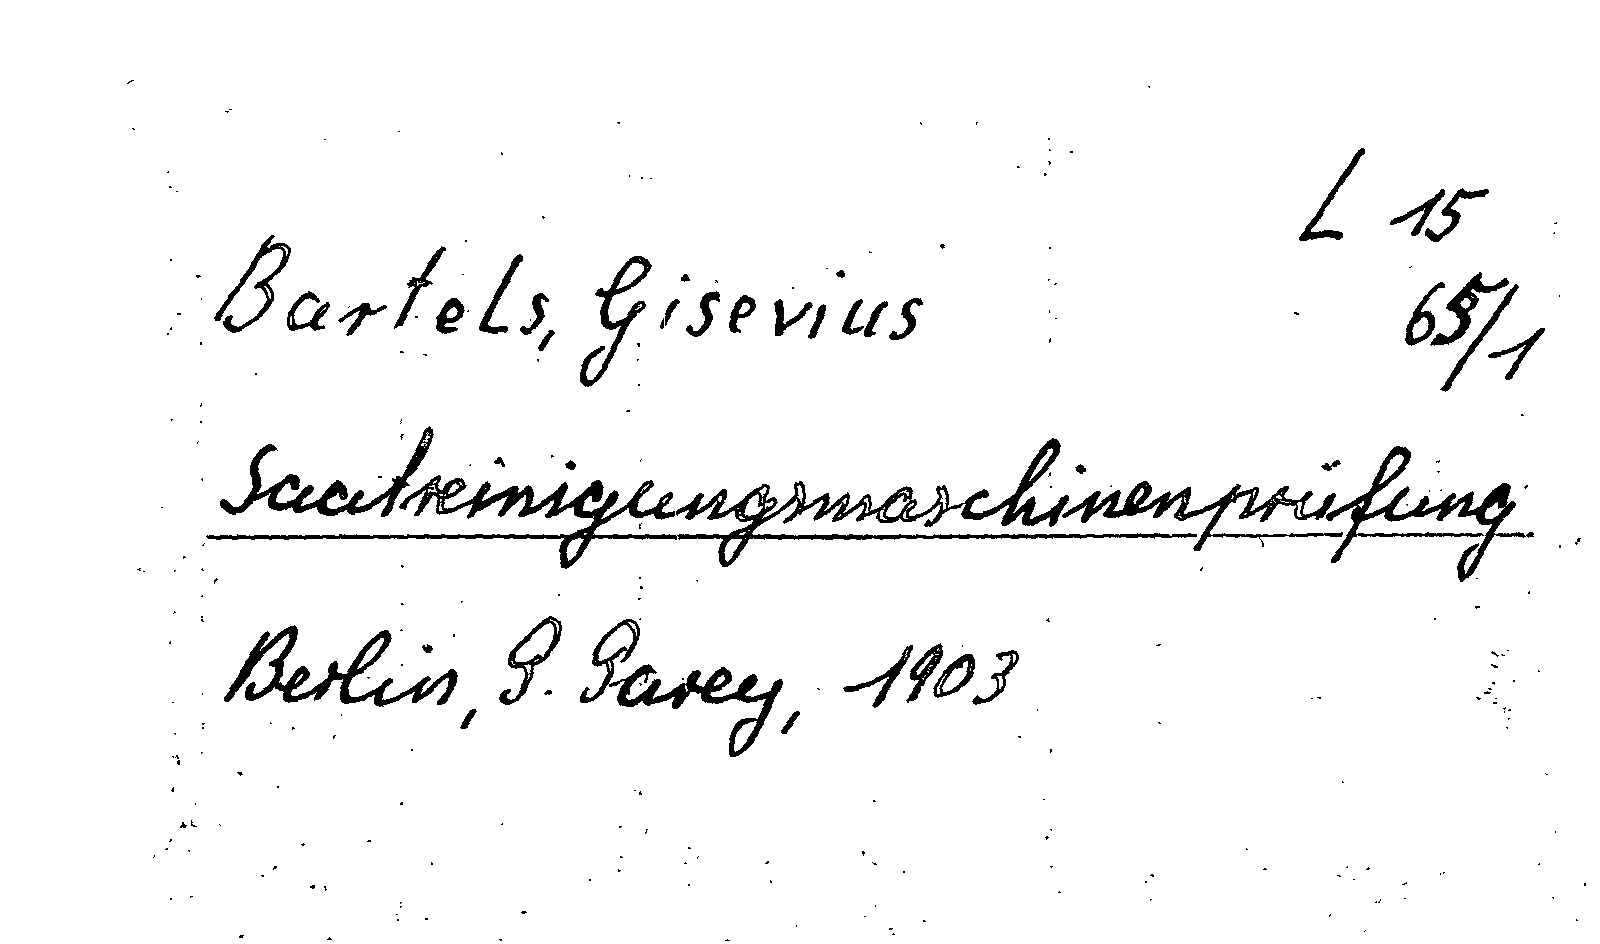 L 15
Bartels, Gisevius
65/1
Saatreinigungsmaschinenprüfung
Berlin, P. Parey, 1903